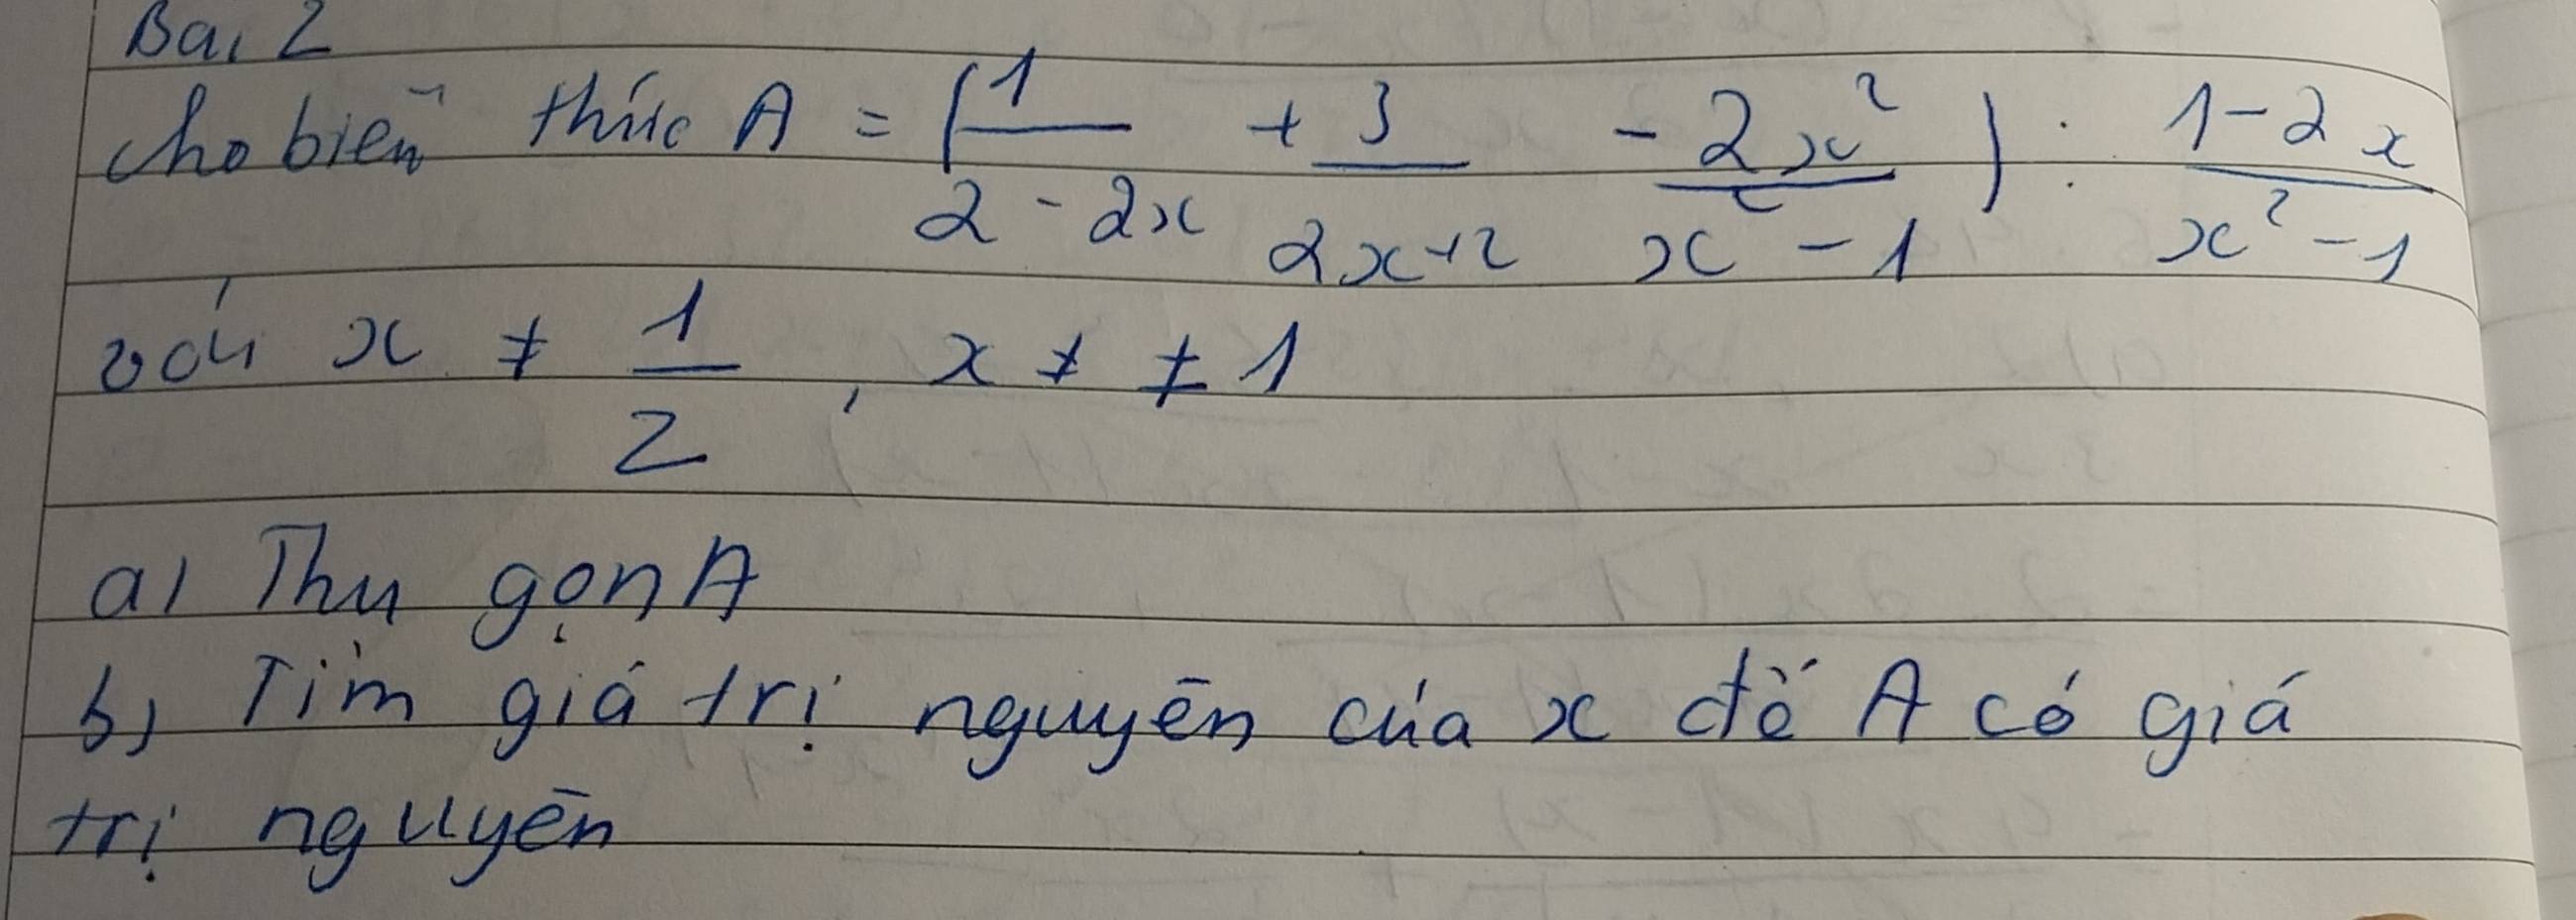 Bài 2
cho biến thức A = (1/(2 - 2x) + 3/(2x+2) - 2x²/(x² - 1)) : (1-2x)/(x² - 1)
với x ≠ 1/2 , x ≠ ±1
a) Thu gọn A
b) Tìm giá trị nguyên của x để A có giá
trị nguyên